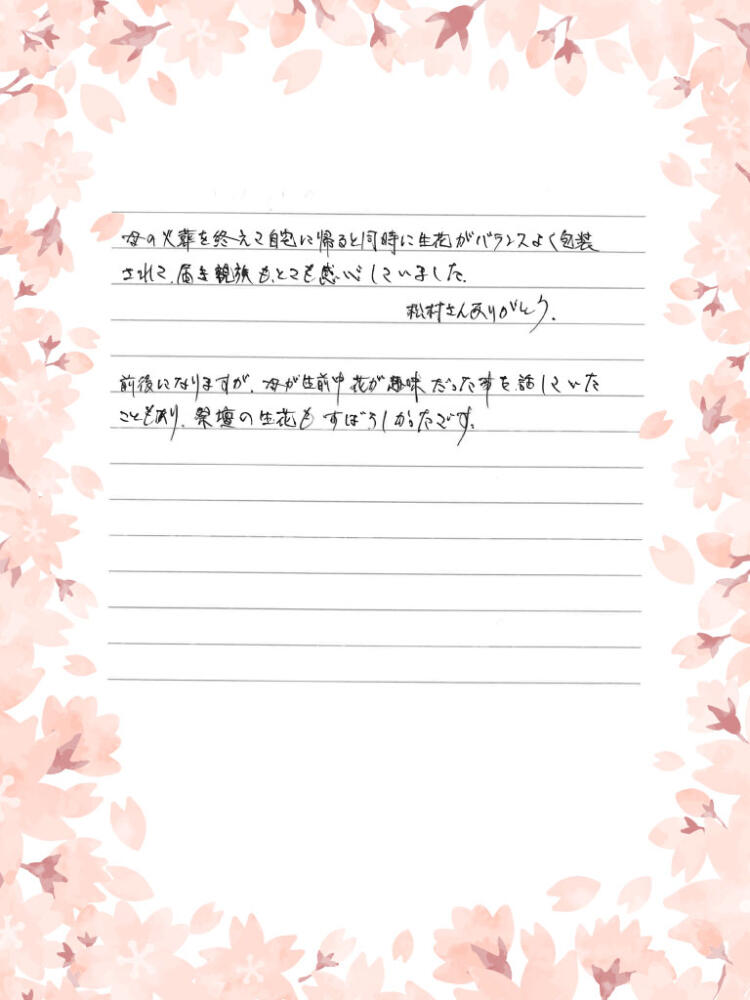 母の火葬を終えて自宅に帰ると同時に生花がバランスよく包装
されて、届き親族も、とても感心していました。
松村さんありがとう。
前後になりますが、母が生前中花が趣味だった事を話していた
こともあり、祭壇の生花もすばらしかったです。